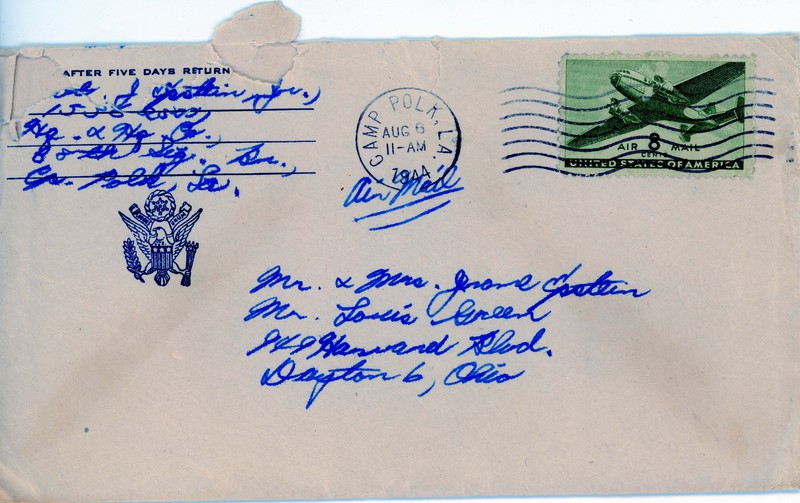 AFTER FIVE DAYS RETURN
J. Epstein, Jr.,
Hq. & Hq. Co.,
Sig. Bn.,
Cp. Polk, La.
CAMP POLK, LA.
AUG 6
11-AM
1944
Air Mail
8
AIR MAIL
CENTS
UNITED STATES OF AMERICA
Mr. & Mrs. Jerome Epstein
Mr. Louis Green
Harvard Blvd.
Dayton 6, Ohio